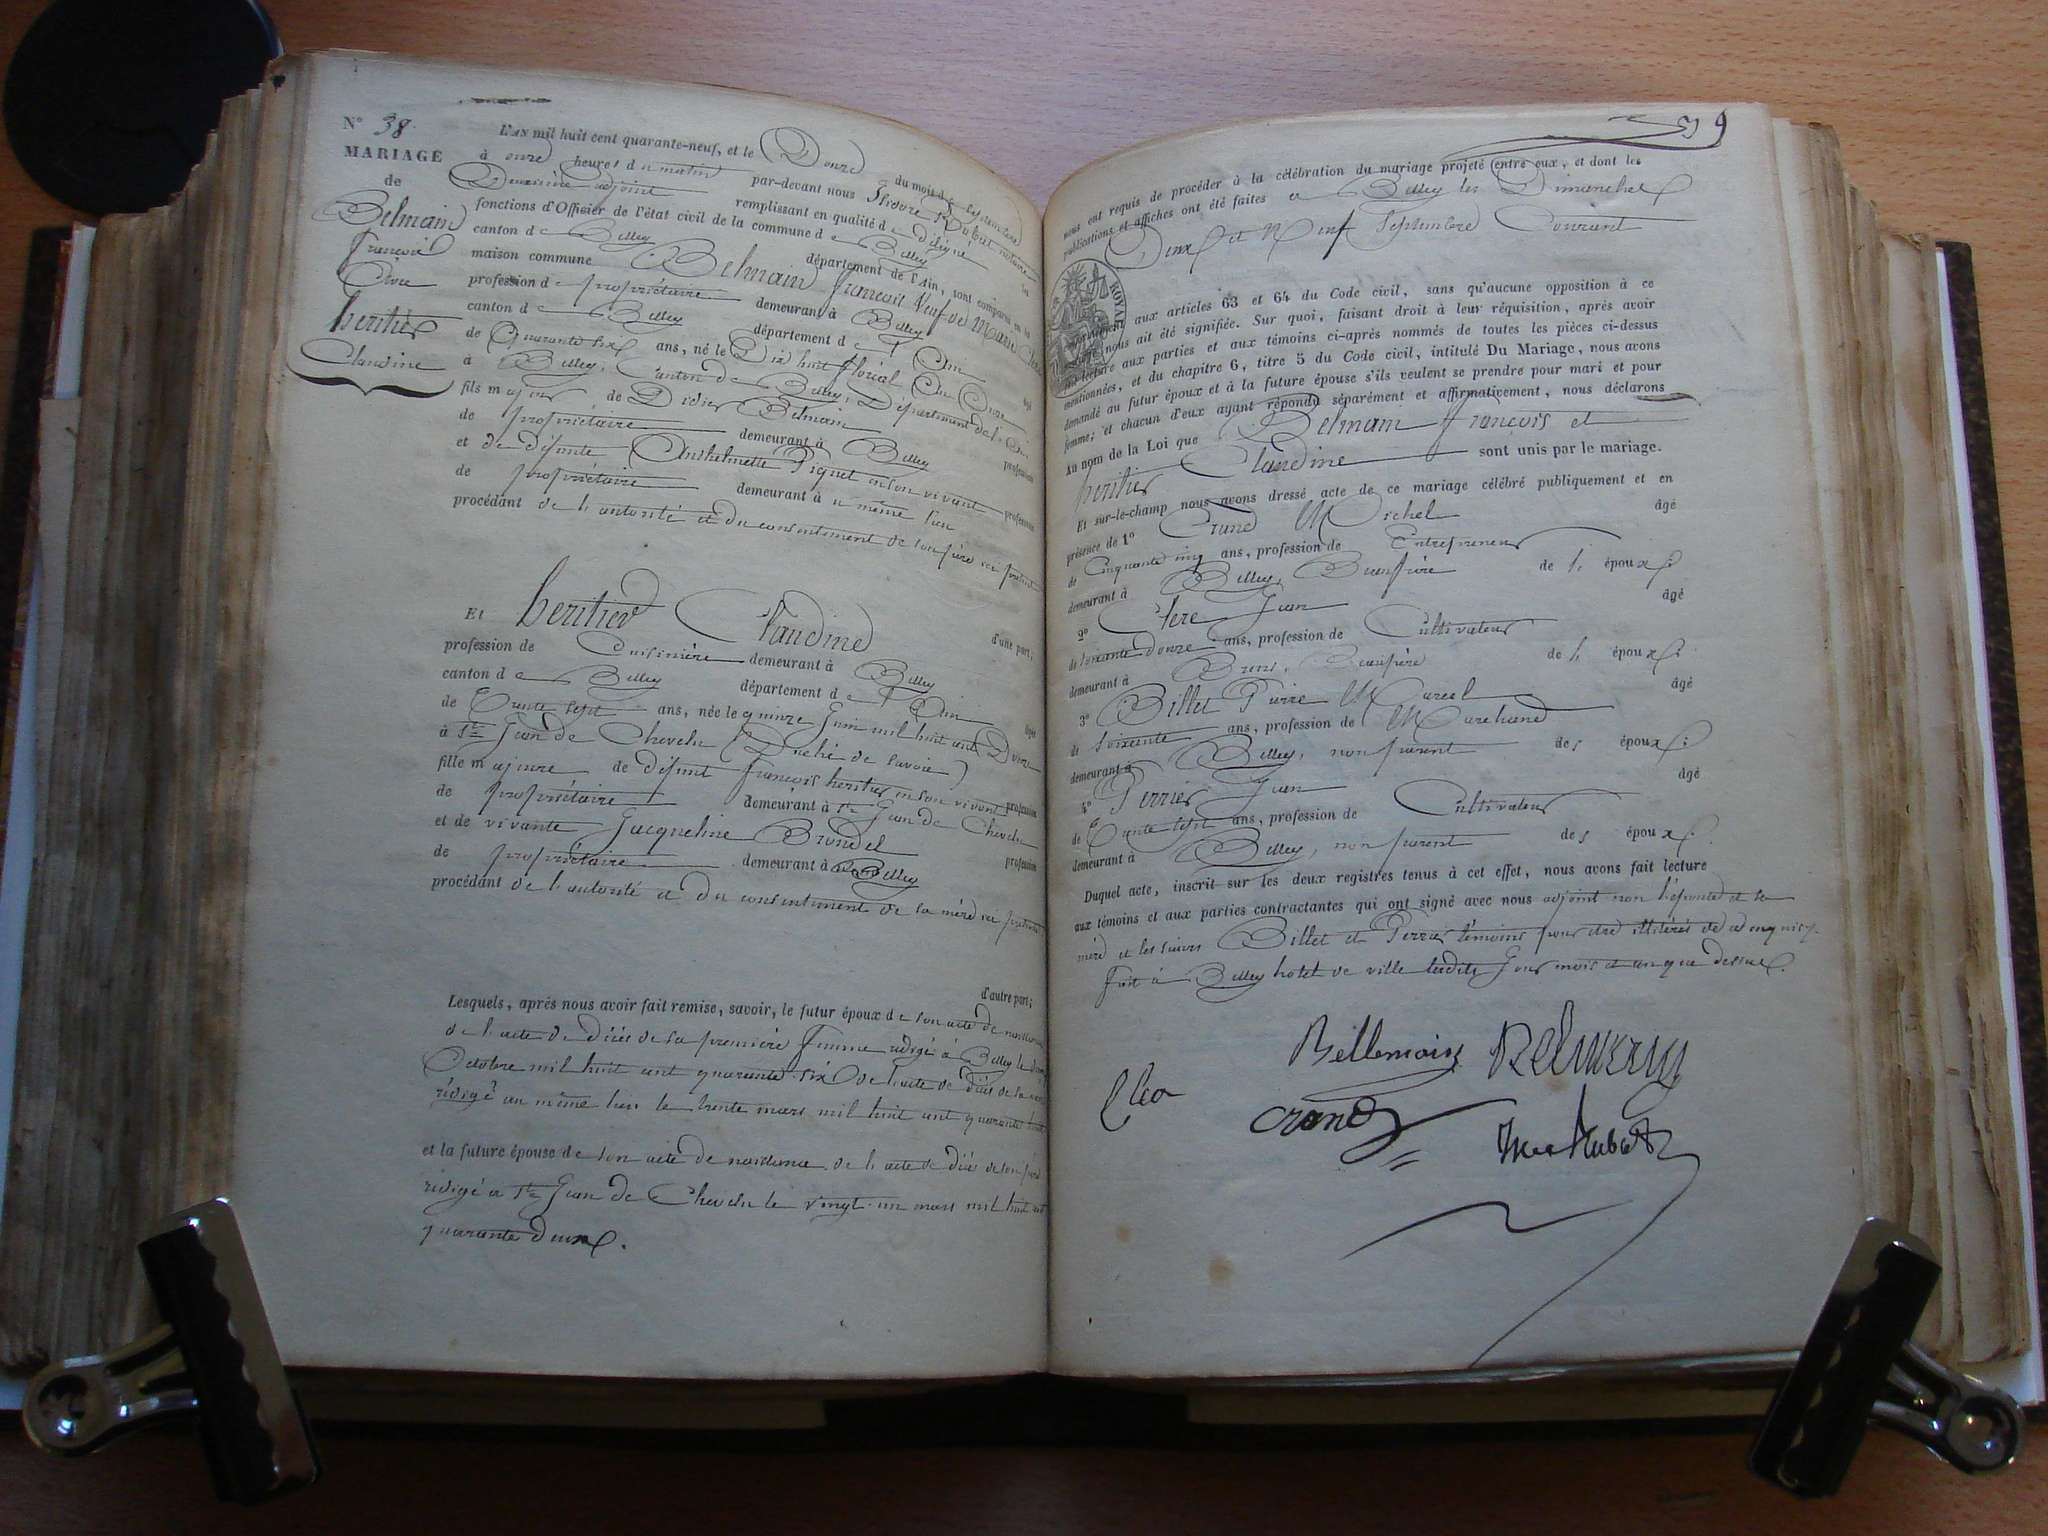 N° 38.
MARIAGE
de
Belmain
françois
Avec
heritier
Claudine
L'AN mil huit cent quarante-neuf, et le Douze du mois de Septembre
à onze heures du matin par-devant nous Hubert notaire
Deuxième adjoint remplissant en qualité de délégué les
fonctions d'Officier de l'état civil de la commune de Belley
canton de Belley département de l'Ain, sont comparus en la
maison commune Belmain françois Veuf de Marie
profession de propriétaire demeurant à Belley
canton de Belley département de l'Ain âgé
de Quarante six ans, né le Dix huit floréal An Onze
à Belley, Canton de Belley, Département de l'Ain
fils majeur de Didier Belmain profession
de propriétaire demeurant à Belley
et de défunte Anthelmette Piquet en son vivant profession
de propriétaire demeurant à u même lieu
procédant de l'autorité et du consentement de son père ici présent
d'une part;
Et heritier Claudine
profession de Cuisinière demeurant à Belley
canton de Belley département de l'Ain âgée
de Trente sept ans, née le quinze Juin mil huit cent Douze
à St Jean de Chevelu (Duché de Savoie)
fille majeure de défunt françois heritier en son vivant profession
de propriétaire demeurant à St Jean de Chevelu
et de vivante Jacqueline Brondel profession
de propriétaire demeurant à Belley
procédant de l'autorité et du consentement de sa mère ici présente
d'autre part;
Lesquels, après nous avoir fait remise, savoir, le futur époux de son acte de naissance
de l'acte de décès de sa première femme rédigé à Belley le
Octobre mil huit cent quarante six de l'acte de décès de sa mère
rédigé au même lieu le trente mars mil huit cent quarante
et la future épouse de son acte de naissance de l'acte de décès de son père
rédigé à St Jean de Chevelu le vingt un mars mil huit cent
quarante deux.
59
nous ont requis de procéder à la célébration du mariage projeté entre eux, et dont les
publications et affiches ont été faites à Belley les Dimanches
Deux et Neuf Septembre Courant
ROYAL
conformément aux articles 63 et 64 du Code civil, sans qu'aucune opposition à ce
mariage nous ait été signifiée. Sur quoi, faisant droit à leur réquisition, après avoir
fait lecture aux parties et aux témoins ci-après nommés de toutes les pièces ci-dessus
mentionnées, et du chapitre 6, titre 5 du Code civil, intitulé Du Mariage, nous avons
demandé au futur époux et à la future épouse s'ils veulent se prendre pour mari et pour
femme; et chacun d'eux ayant répondu séparément et affirmativement, nous déclarons
Au nom de la Loi que Belmain françois et
heritier Claudine sont unis par le mariage.
Et sur-le-champ nous avons dressé acte de ce mariage célébré publiquement et en
présence de 1° Crand Michel âgé
de Cinquante cinq ans, profession de Entrepreneur
demeurant à Belley, Beaufrère de l' époux;
2° Clere Jean âgé
de soixante douze ans, profession de Cultivateur
demeurant à Brens, Beaupère de l' époux;
3° Billet Pierre Marcel âgé
de soixante ans, profession de Marchand
demeurant à Belley, non parent des époux;
4° Perrier Jean âgé
de Trente sept ans, profession de Cultivateur
demeurant à Belley, non parent des époux.
Duquel acte, inscrit sur les deux registres tenus à cet effet, nous avons fait lecture
aux témoins et aux parties contractantes qui ont signé avec nous adjoint non l'épouse et sa
mère et les sieurs Billet et Perrier témoins pour être illitérés de ce enquis.
fait à Belley hotel de ville lesdits Jour mois et an que dessus.
Bellemain Belmain
Cler
Crand
Hubert